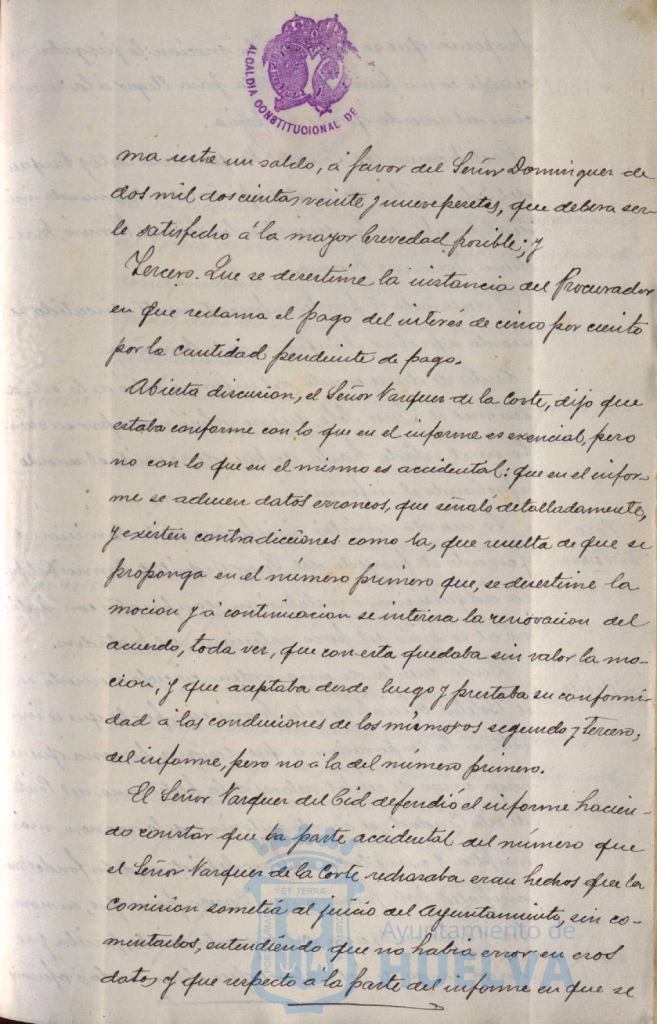 ALCALDIA CONSTITUCIONAL DE
ma resta un saldo, á favor del Señor Dominguez de
dos mil doscientas veinte y nueve pesetas, que debera ser-
le satisfecho á la mayor brevedad posible; y
Tercero. Que se desestime la instancia del Procurador
en que reclama el pago del interés de cinco por ciento
por la cantidad pendiente de pago.
Abierta discusion, el Señor Vazquez de la Corte, dijo que
estaba conforme con lo que en el informe es exencial, pero
no con lo que en el mismo es accidental: que en el infor-
me se aducen datos erroneos, que señaló detalladamente,
y existen contradicciones como la, que resulta de que se
proponga en el número primero que, se desestime la
mocion y á continuacion se interesa la renovacion del
acuerdo, toda vez, que con esta quedaba sin valor la mo-
cion, y que aceptaba desde luego y prestaba su conformi-
dad á las conclusiones de los números segundo y tercero,
del informe, pero no á la del número primero.
El Señor Vazquez del Cid defendió el informe hacien-
do constar que la parte accidental del número que
el Señor Vazquez de la Corte rechazaba eran hechos que la
comision sometia al juicio del Ayuntamiento, sin co-
mentarlos, entendiendo que no habia error en esos
datos y que respecto á la parte del informe en que se
ET TERRA
Ayuntamiento de
HUELVA